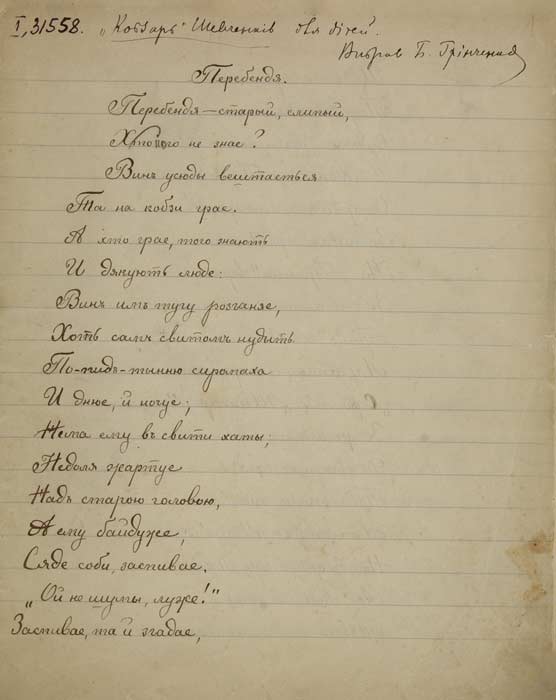 I, 31558. „Кобзарь" Шевченків для дітей.
Вибрав Б. Грінченко
Перебендя.
Перебендя—старый, слипый,
Хто його не знае?
Винъ усюды вештаеться
Та на кобзи грае.
А хто грае, того знають
И дякують люде:
Винъ имъ тугу розганяе,
Хоть самъ свитомъ нудыть.
По-пидъ-тынню сиромаха
И днюе, й ночуе;
Нема ему въ свити хаты;
Недоля жартуе
Надъ старою головою,
А ему байдуже,
Сяде соби, заспивае.
„Ой не шумы, луже!"
Заспивае, та й згадае,